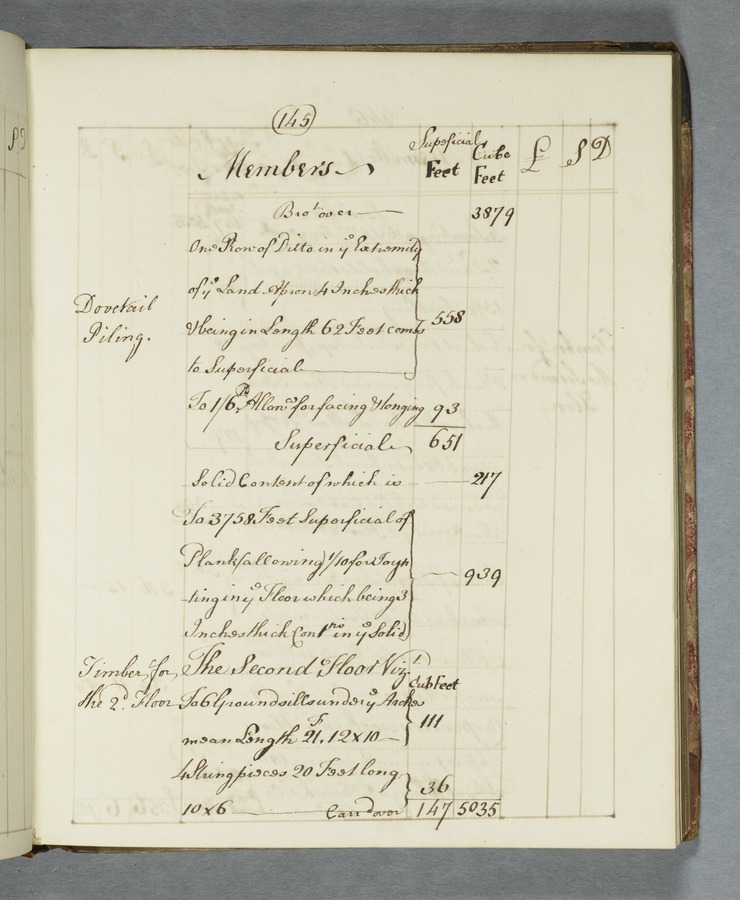 145
Members Superficial Feet Cube Feet £ S D
Bro.t over 3879
One Row of Ditto in y.e Extremity
of y.e Land Apron 4 Inches thick
Dovetail
Piling.
& being in Length 62 Feet comes 558
to Superficial
To 1/6.th Allow.ce for facing & Tonging 93
Superficial 651
Solid Content of which is 217
To 3758 Feet Superficial of
Plank (allowing) 1/10 for Joyn
ting in y.e Floor which being 3 939
Inches thick Cont.ns in y.e Solid
Timber for The Second Floor Viz.t CubFeet
the 2.d Floor To 6 Groundsills under y.e Arches
mean Length 21.F 12 x 10 111
4 Stringpieces 20 Feet long
10 x 6 36
Carr.d over 147 5035
S D